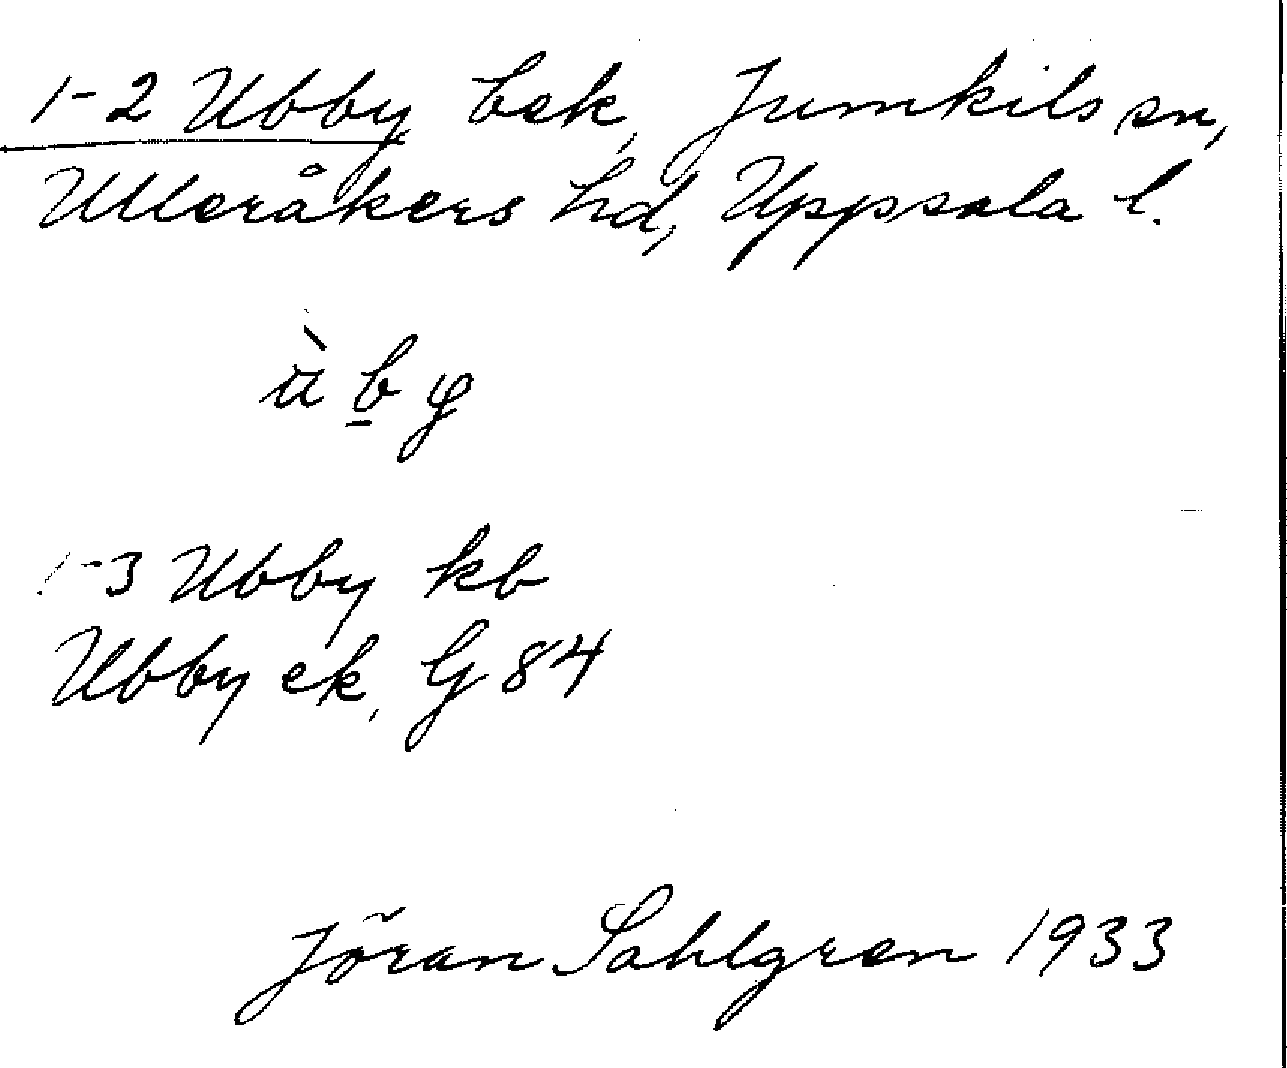 1-2 Ubby bek, Jumkils sn,
Ulleråkers hd, Uppsala l.
ùby
1-3 Ubby kb
Ubby ek, G 84
Jöran Sahlgren 1933